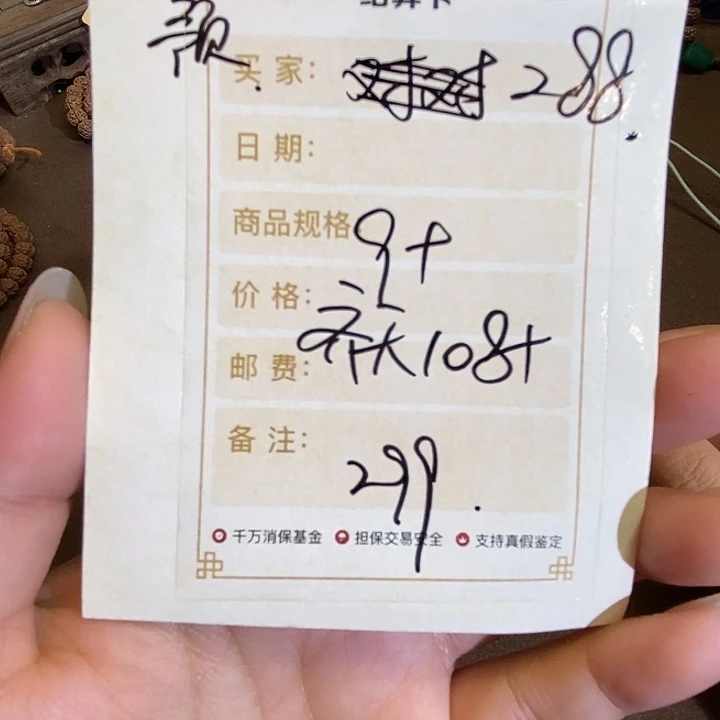 结算卡
买 家: 288.
日 期:
商品规格 9+
价 格:
邮 费: 108+
备 注: 299.
千万消保基金 担保交易安全 支持真假鉴定